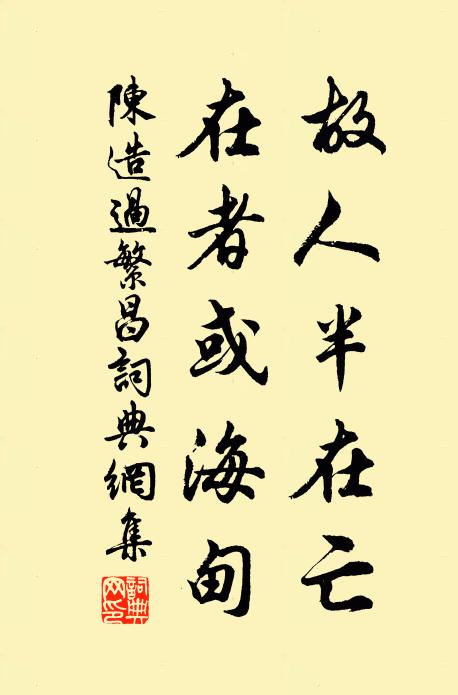 故人半在亡
在者或海甸
陳造過繁昌詞典網集
詞典網印